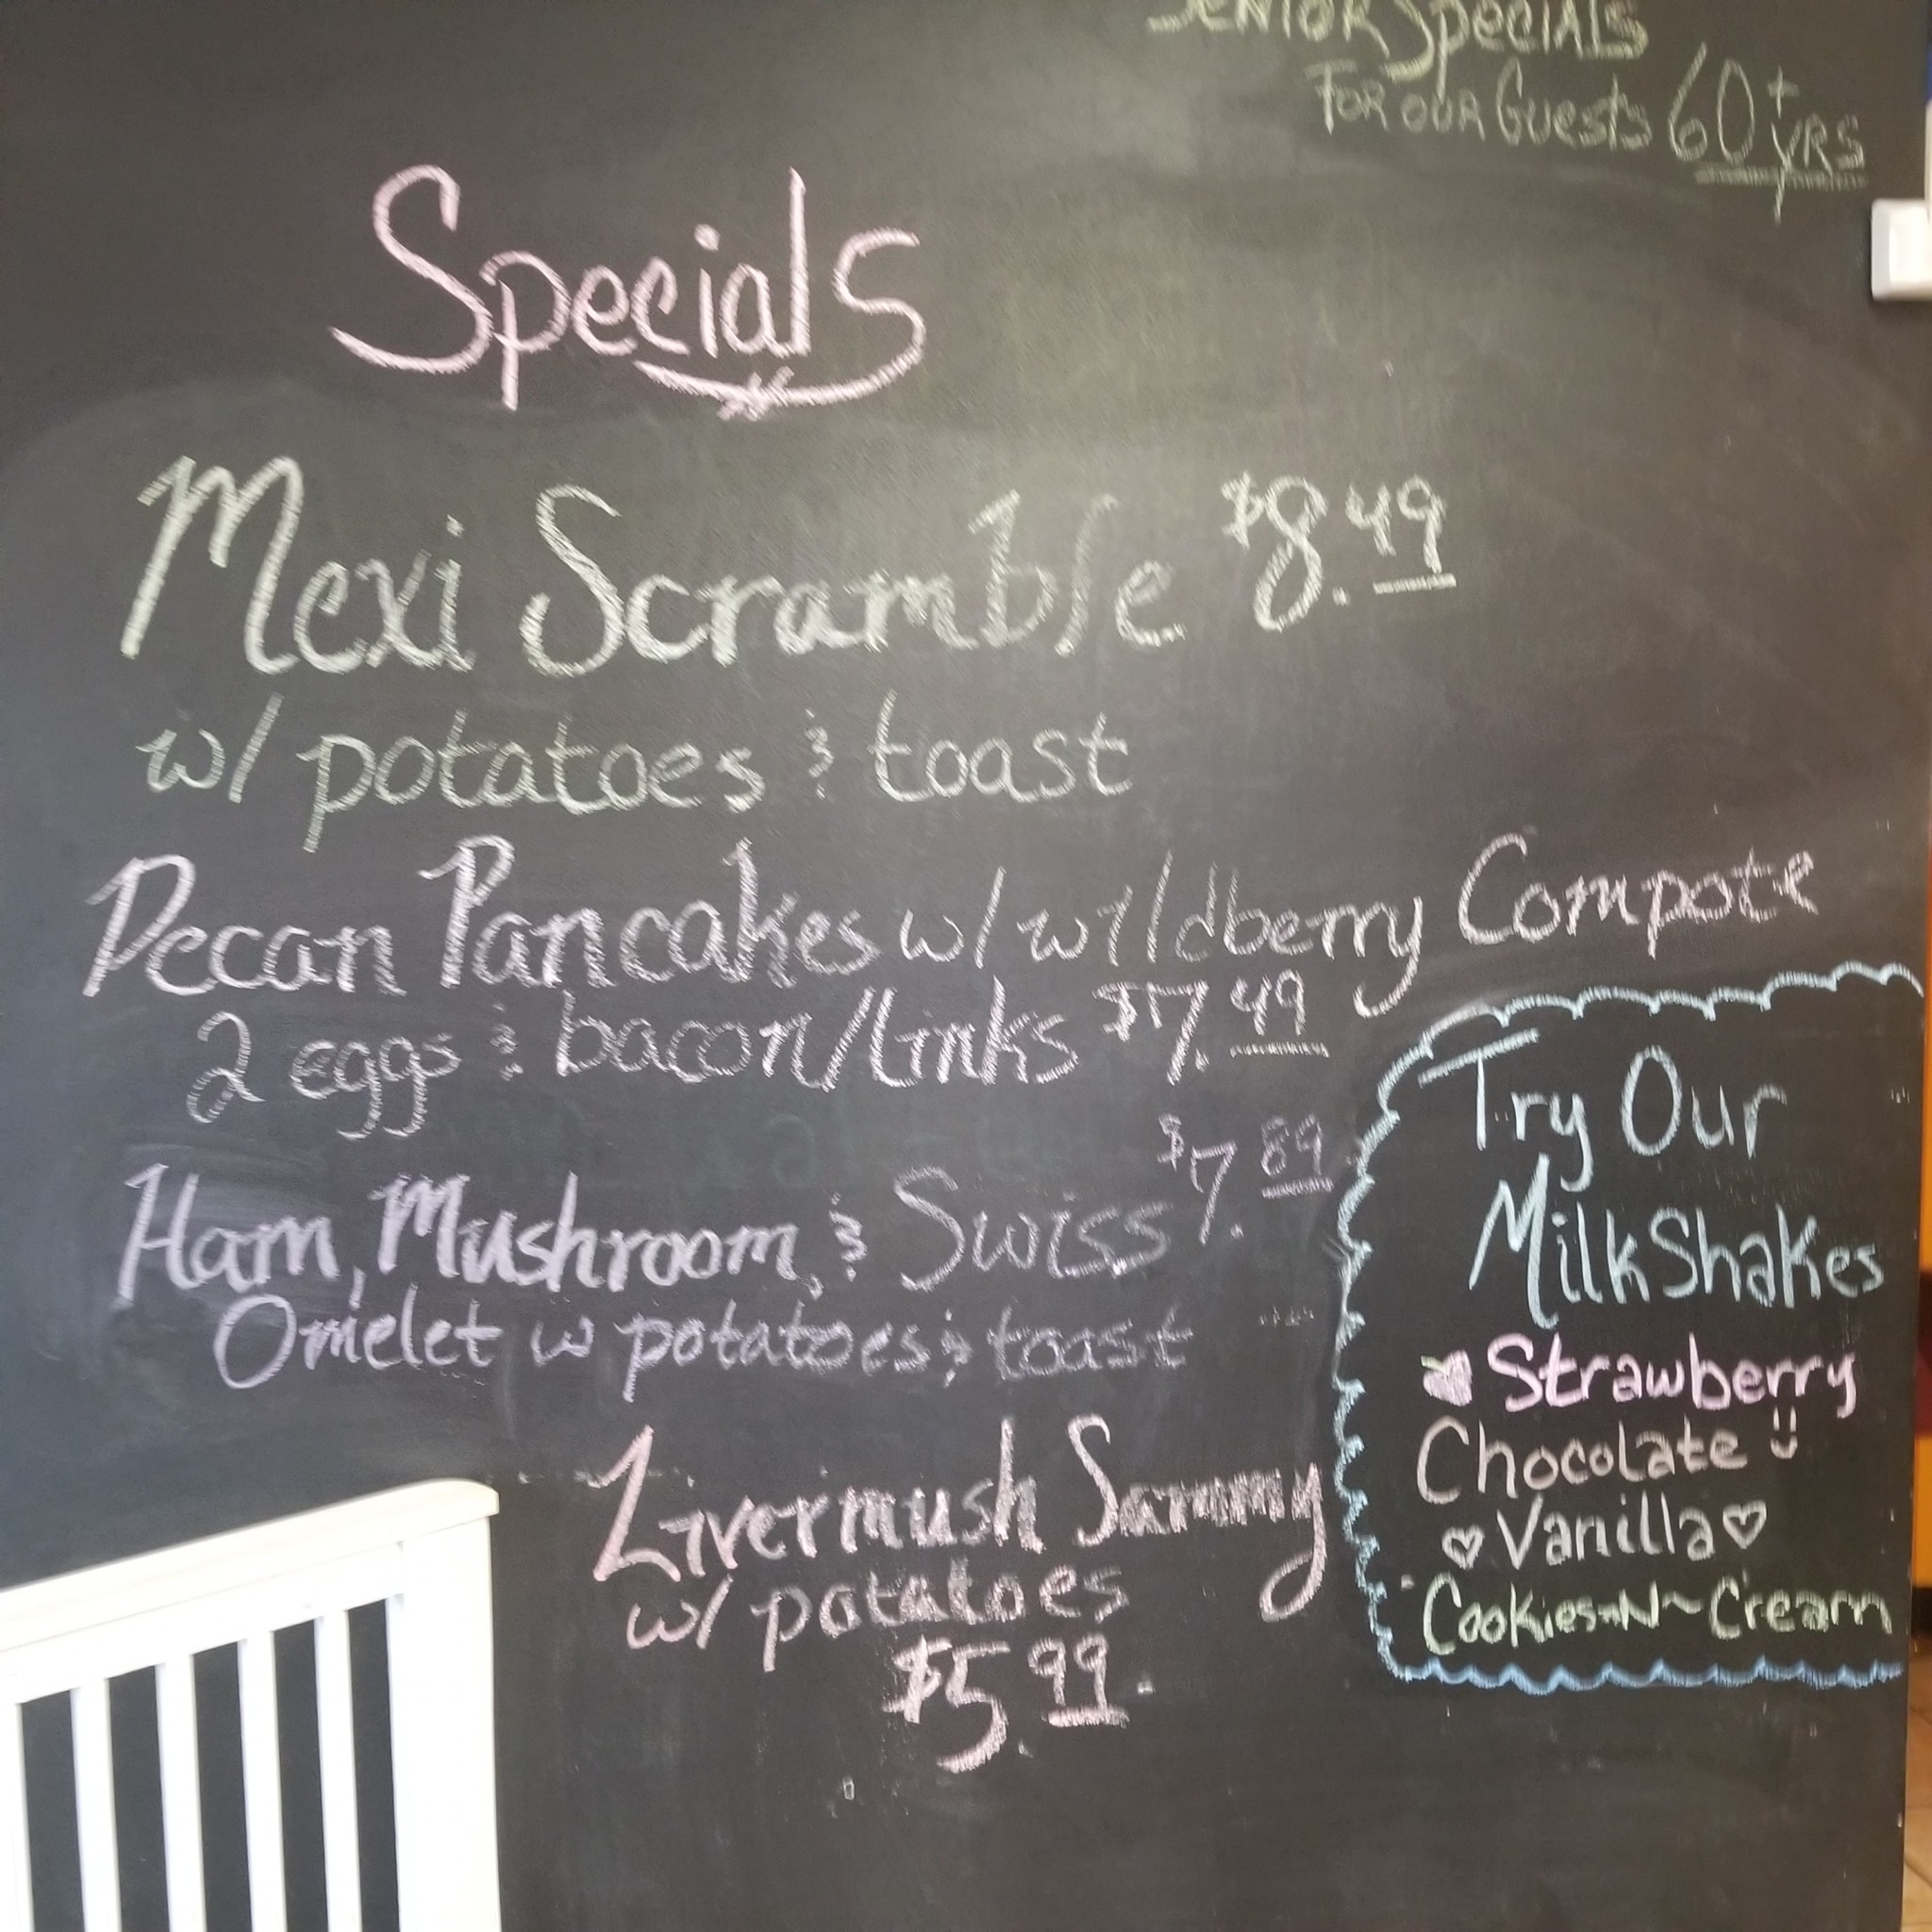 SENIOR SPECIALS
FOR OUR Guests 60+ yRS
Specials
Mexi Scramble $8.49
w/ potatoes & toast
Pecan Pancakes w/ wildberry Compote
2 eggs & bacon/links $7.49
$7.89
Ham, Mushroom, & Swiss
Omelet w potatoes & toast
Livermush Sammy
w/ potatoes
$5.99
Try Our
MilkShakes
Strawberry
Chocolate
Vanilla
Cookies-N-Cream